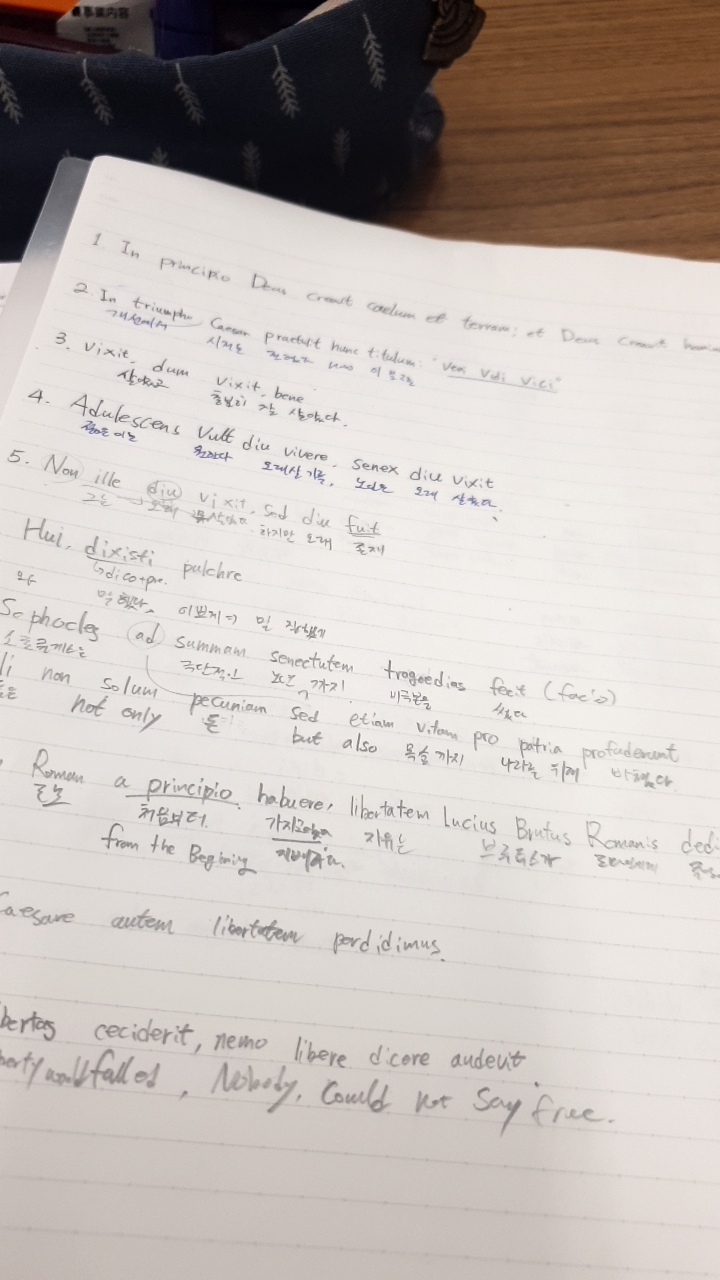 事業内容
1. In principio Deus creavit caelum et terram; et Deus creavit
2. In triumpho Caesar praetulit hunc titulum: "Veni Vidi Vici"
개선에서 시저는
3. Vixit, dum vixit, bene
살았고 잘 살았다.
4. Adulescens Vult diu vivere, senex diu vixit
젊은이는 원하다 오래살기를, 노인은 오래 살았다.
5. Non ille diu vixit, sed diu fuit
그는 오래 하지만 오래 존재
Hui, dixisti pulchre
↳dico+pre.
말했다, 이쁘게→
Sophocles ad summam senectutem tragoedias fecit (facio)
소포클레스는 극단적인 노년 까지 비극을 썼다
li non solum pecuniam sed etiam vitam pro patria profuderunt
not only 돈 but also 목숨까지 나라를 위해 바쳤다
Roman a principio habuere, libertatem Lucius Brutus Romanis ded
로마 처음부터 자유는 브루투스가
from the Begining
Caesare autem libertatem perdidimus.
bertas ceciderit, nemo libere dicere audeut.
berty would falled, Nobody, Could not say free.